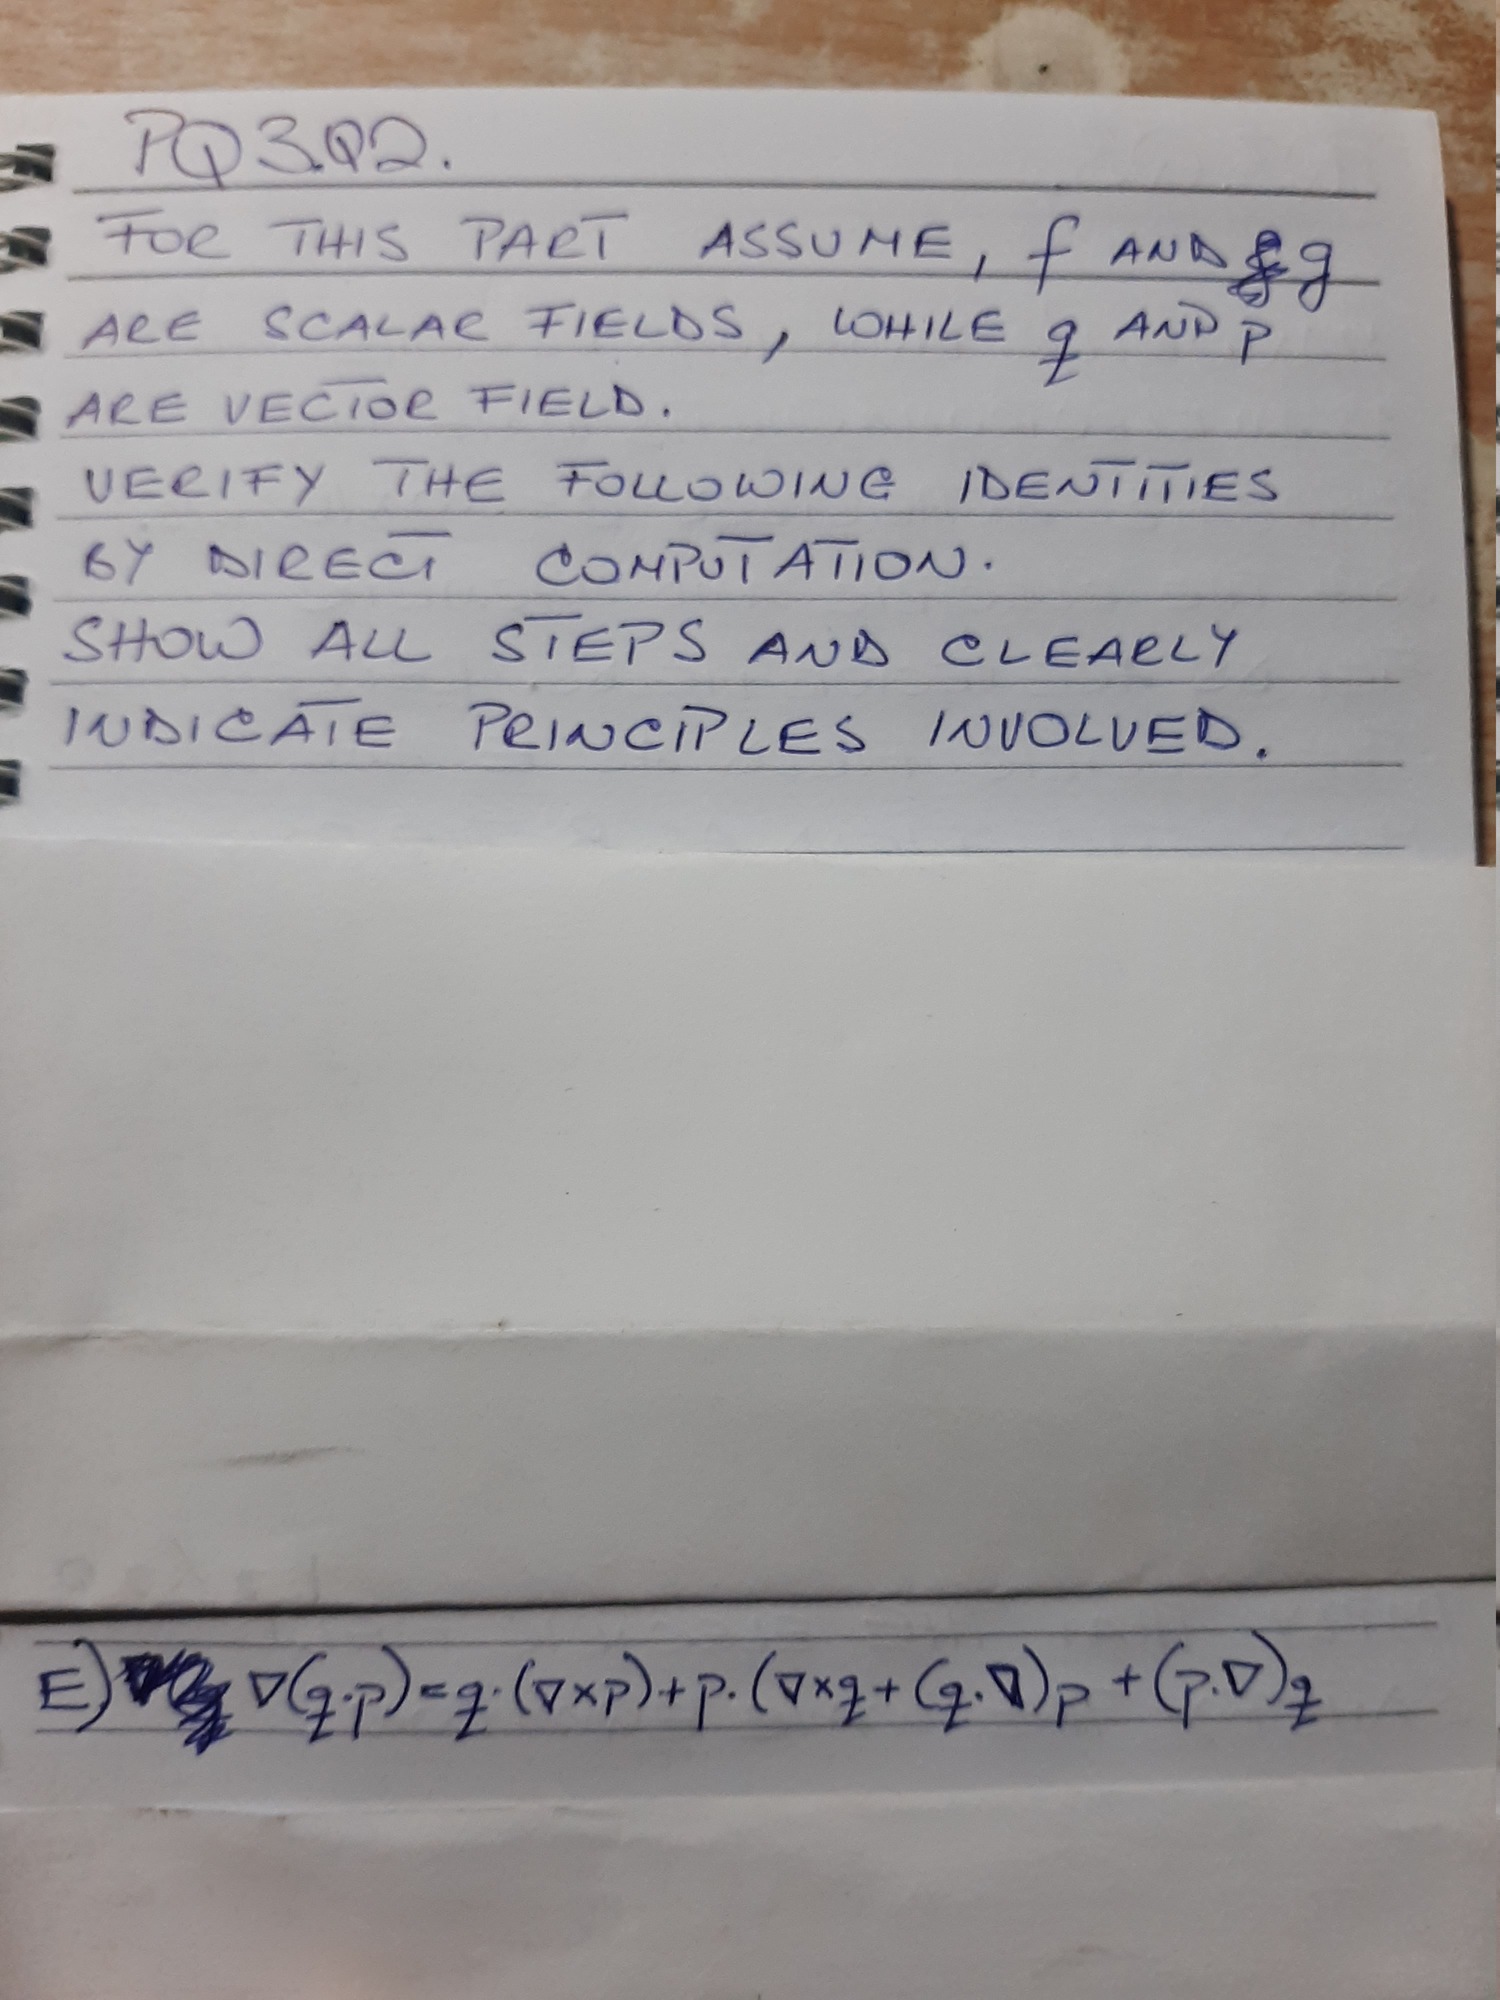 PQ3.Q2.
FOR THIS PART ASSUME, f AND g
ARE SCALAR FIELDS, WHILE q AND p
ARE VECTOR FIELD.
VERIFY THE FOLLOWING IDENTITIES
BY DIRECT COMPUTATION.
SHOW ALL STEPS AND CLEARLY
INDICATE PRINCIPLES INVOLVED.
E) ∇(q·p)=q·(∇×p)+p·(∇×q+(q·∇)p+(p·∇)q